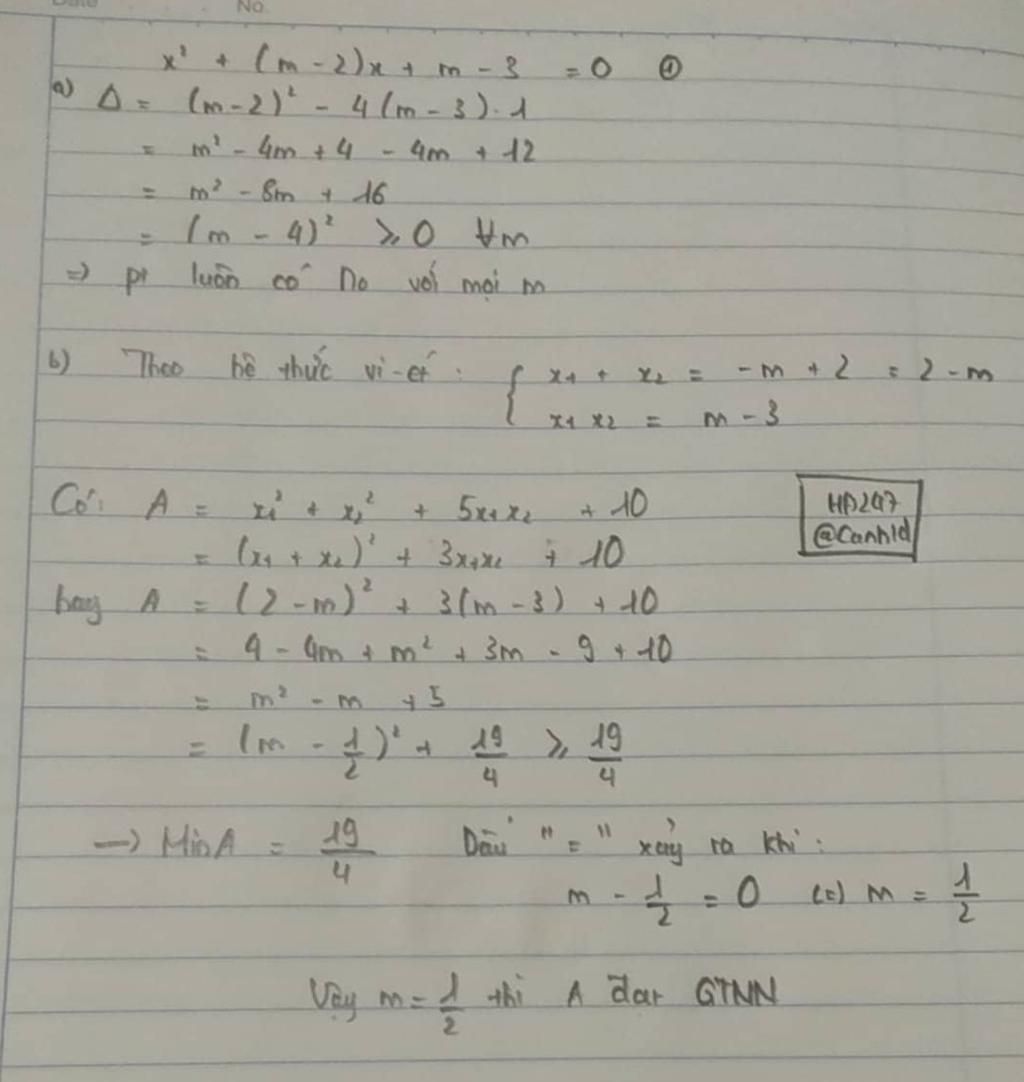 No.
x² + (m - 2)x + m - 3 = 0 ①
a) Δ = (m - 2)² - 4(m - 3).1
= m² - 4m + 4 - 4m + 12
= m² - 8m + 16
= (m - 4)² ⩾ 0 ∀m
=> pt luôn có no với mọi m
b) Theo hệ thức vi-ét : { x₁ + x₂ = -m + 2 = 2 - m
x₁ x₂ = m - 3
Có: A = x₁² + x₂² + 5x₁x₂ + 10
= (x₁ + x₂)² + 3x₁x₂ + 10
HD247
@Canh1d
hay A = (2 - m)² + 3(m - 3) + 10
= 4 - 4m + m² + 3m - 9 + 10
= m² - m + 5
= (m - 1/2)² + 19/4 ⩾ 19/4
—> Min A = 19/4 Dấu "=" xảy ra khi :
m - 1/2 = 0 (=) m = 1/2
Vậy m = 1/2 thì A đạt GTNN